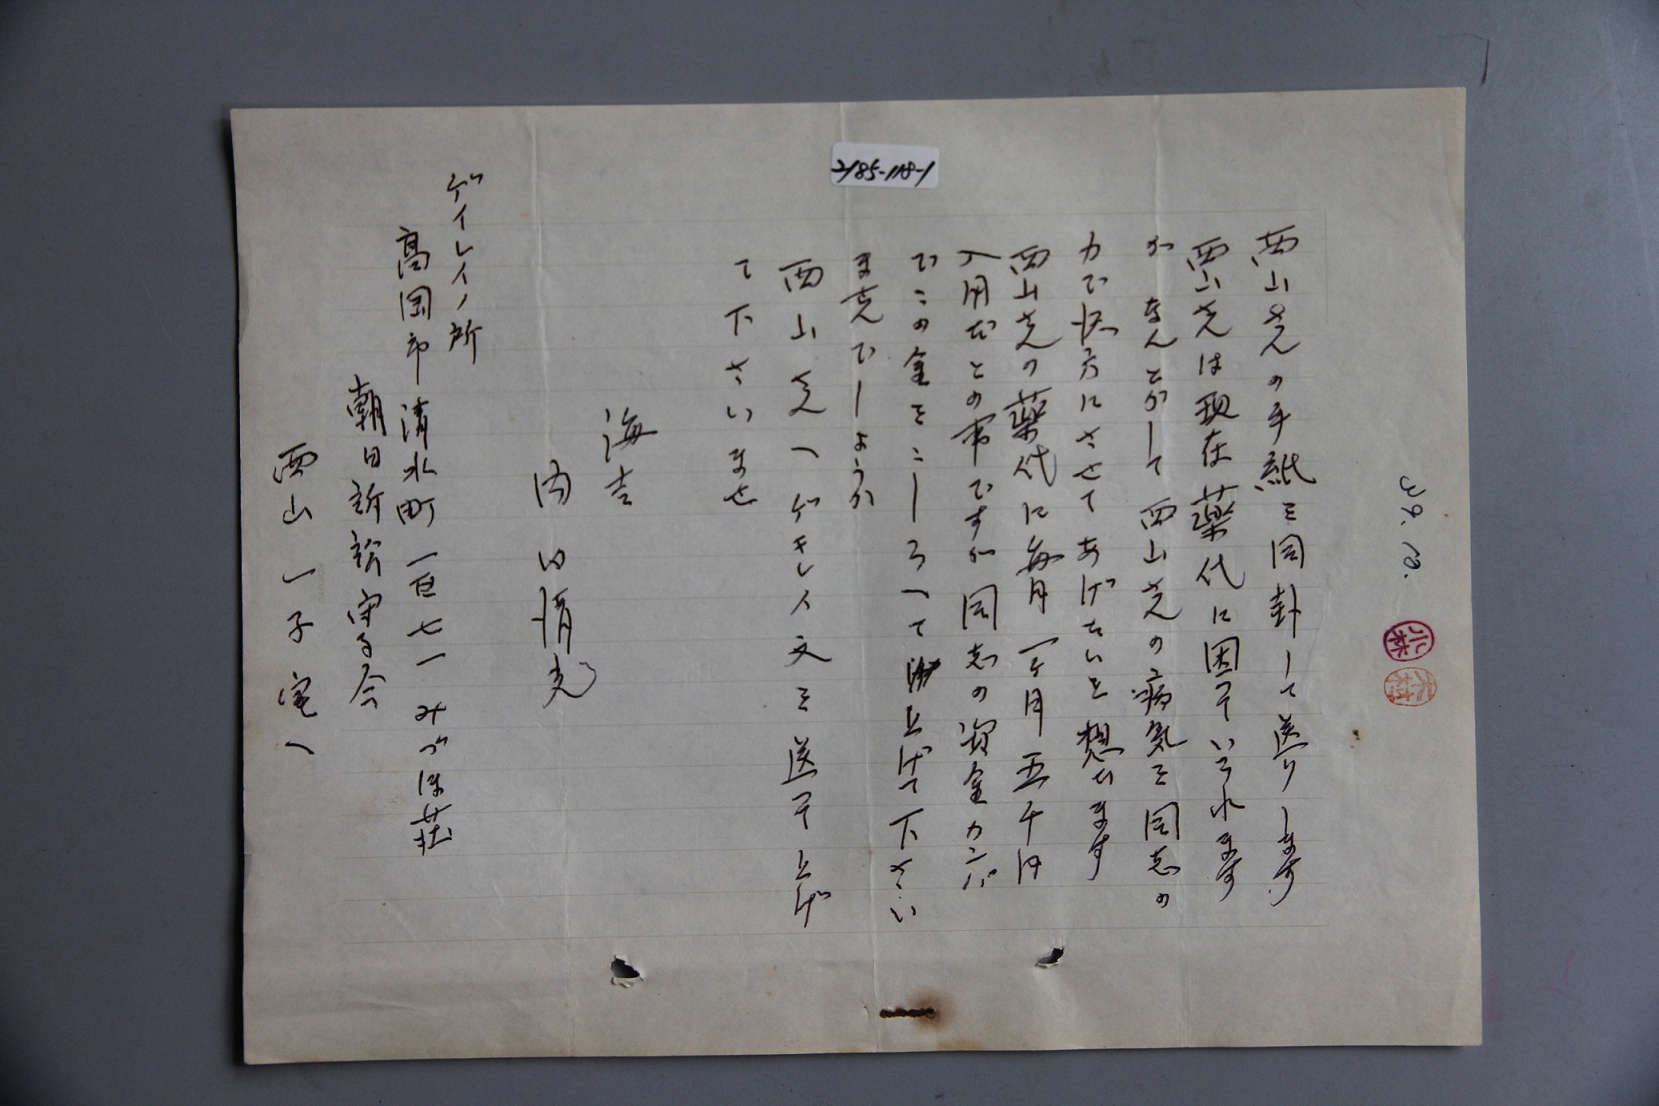 2185-118-1
39.10.
小林
西山さんの手紙を同封して送りします
西山さんは現在薬代に困っていられます
が なんとかして 西山さんの病気を同志の
力で快方にさせてあげたいと想います
西山さんの薬代に毎月一ヶ月五千円
入用だとの事ですが同志の資金カンパ
でこの金をこしらへて上げて下さい
ませんでしようか
西山さんへゲキレイ文を送って上げ
て下さいませ
ゲイレイノ所
高岡市清水町一百七一 みづほ荘
朝日訴訟守る会
西山一子宅へ